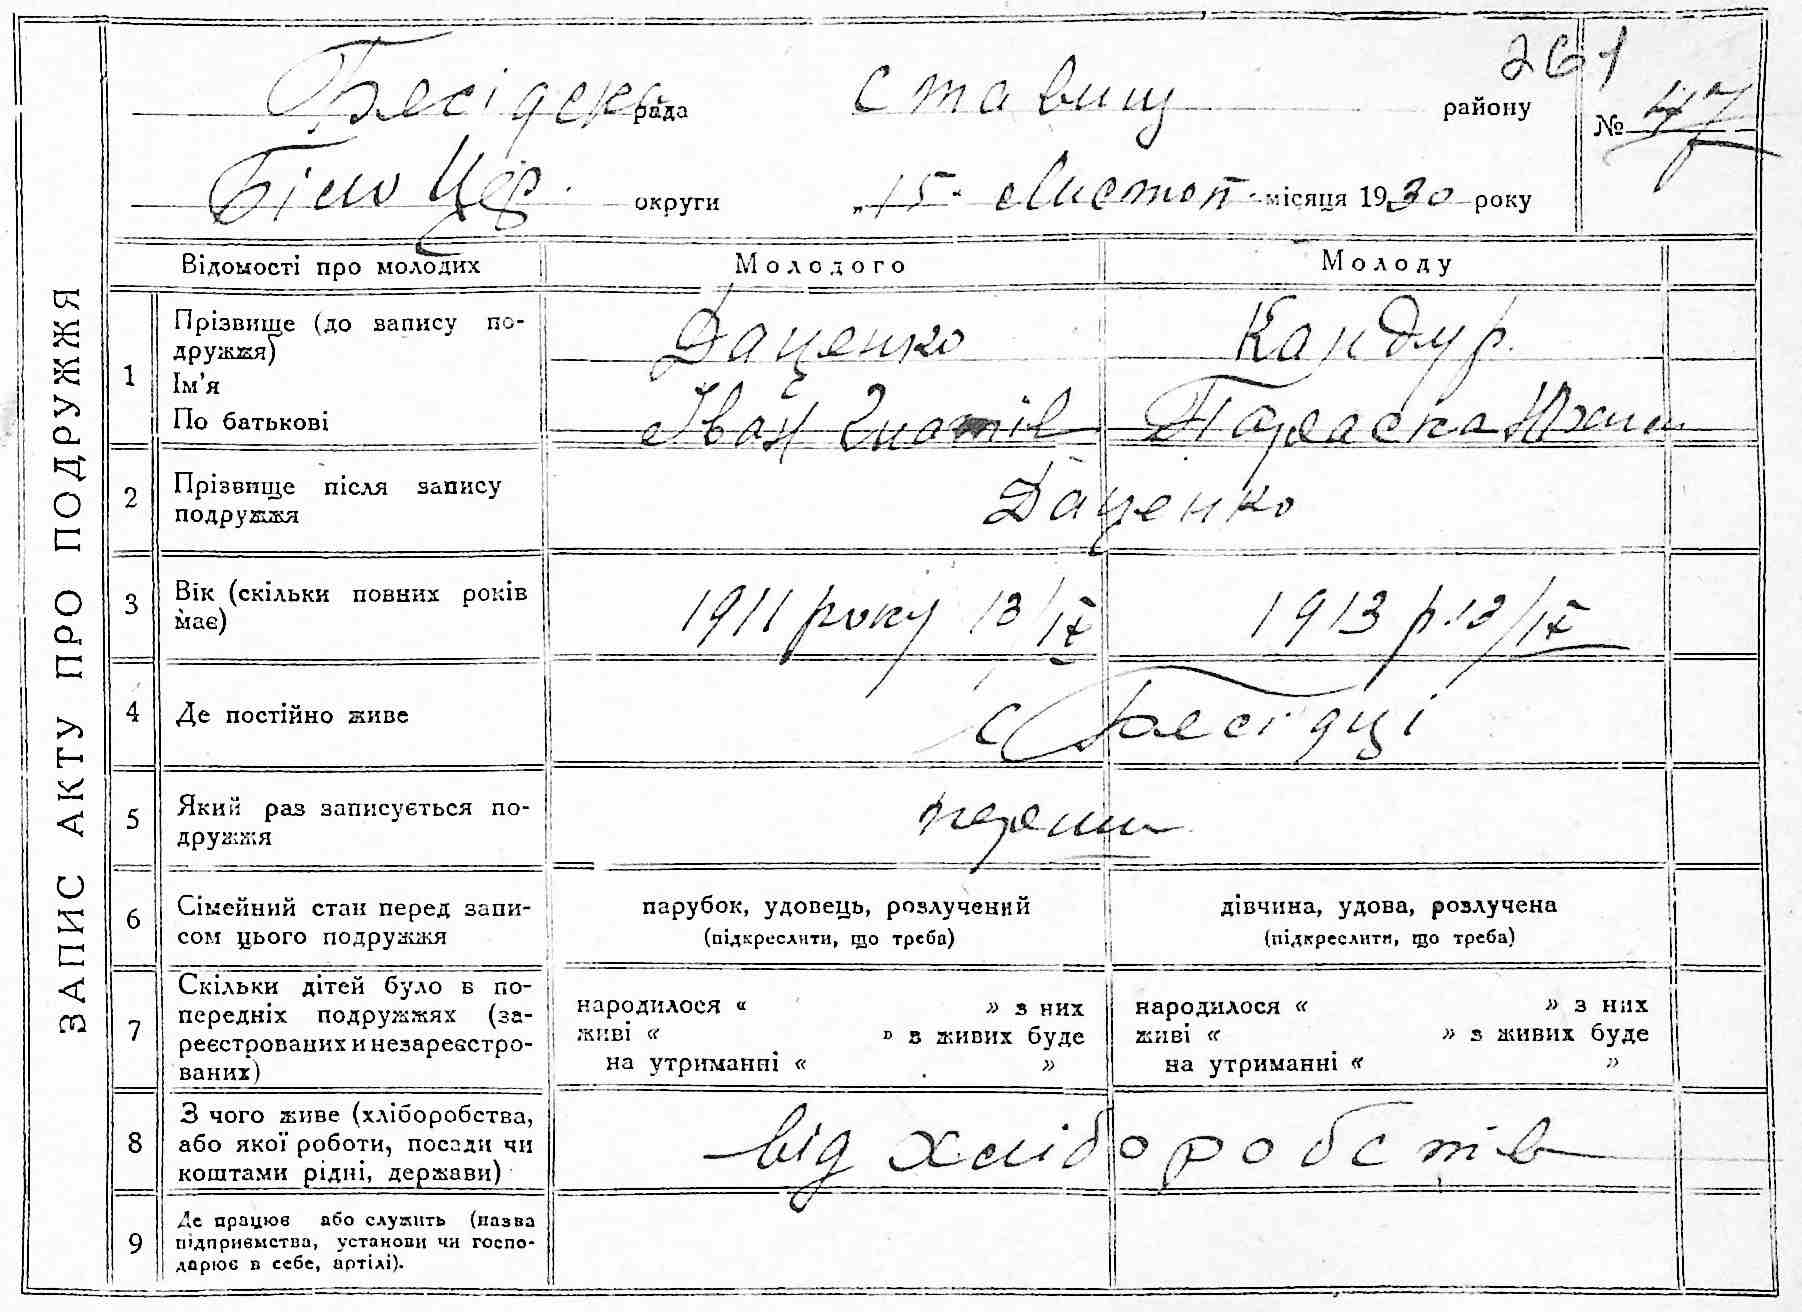 261
Бесідськ рада Ставищ району № 47
Біло Цер. округи „15" Листоп. місяця 1930 року
ЗАПИС АКТУ ПРО ПОДРУЖЖЯ
Відомості про молодих Молодого Молоду
1 Прізвище (до запису по-
дружжя) Даценко Кандур.
Ім'я
По батькові Іван Гнатів Параска
2 Прізвище після запису
подружжя Даценко
3 Вік (скільки повних років
має) 1911 року 13/IX 1913 р. 13/IX
4 Де постійно живе с Бесідці
5 Який раз записується по-
дружжя перши
6 Сімейний стан перед запи-
сом цього подружжя
парубок, удовець, розлучений
(підкреслити, що треба)
дівчина, удова, розлучена
(підкреслити, що треба)
7 Скільки дітей було в по-
передніх подружжях (за-
реєстрованих и незареєстро-
ваних)
народилося « » з них
живі « » в живих буде
на утриманні « »
народилося « » з них
живі « » з живих буде
на утриманні « »
8 З чого живе (хліборобства,
або якої роботи, посади чи
коштами рідні, держави)
від хліборобств
9 Де працює або служить (назва
підприємства, установи чи госпо-
дарює в себе, артілі).